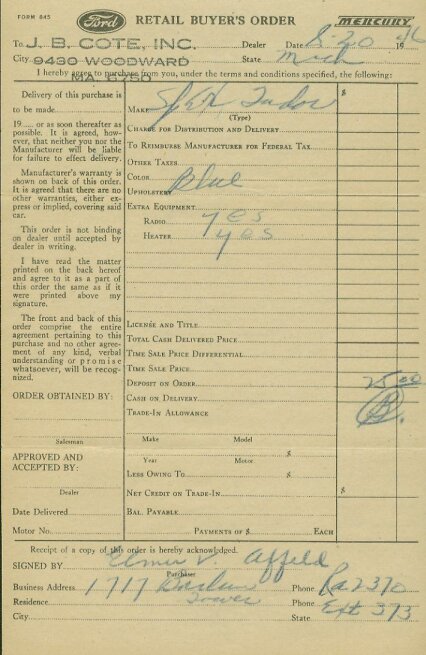 FORM 845
Ford
RETAIL BUYER'S ORDER
MERCURY
To J. B. COTE, INC. Dealer Date 8-20 1946
City 9430 WOODWARD State Mich
MA. 6750
I hereby agree to purchase from you, under the terms and conditions specified, the following:
Delivery of this purchase is
to be made
19..... or as soon thereafter as
possible. It is agreed, how-
ever, that neither you nor the
Manufacturer will be liable
for failure to effect delivery.
Manufacturer's warranty is
shown on back of this order.
It is agreed that there are no
other warranties, either ex-
press or implied, covering said
car.
This order is not binding
on dealer until accepted by
dealer in writing.
I have read the matter
printed on the back hereof
and agree to it as a part of
this order the same as if it
were printed above my
signature.
The front and back of this
order comprise the entire
agreement pertaining to this
purchase and no other agree-
ment of any kind, verbal
understanding or promise
whatsoever, will be recog-
nized.
ORDER OBTAINED BY:
Salesman
APPROVED AND
ACCEPTED BY:
Dealer
Date Delivered
Motor No.
$
MAKE Tudor
(Type)
CHARGE FOR DISTRIBUTION AND DELIVERY
TO REIMBURSE MANUFACTURER FOR FEDERAL TAX
OTHER TAXES
COLOR Blue
UPHOLSTERY
EXTRA EQUIPMENT
RADIO yes
HEATER yes
LICENSE AND TITLE
TOTAL CASH DELIVERED PRICE
TIME SALE PRICE DIFFERENTIAL
TIME SALE PRICE
DEPOSIT ON ORDER 25.00
CASH ON DELIVERY
TRADE-IN ALLOWANCE
Make Model
$
Year Motor
LESS OWING TO $
NET CREDIT ON TRADE-IN $
BAL. PAYABLE
PAYMENTS OF $ EACH
Receipt of a copy of this order is hereby acknowledged.
SIGNED BY Elmer V. Affeld
Purchaser
Business Address 1717 Phone Ra 2370
Residence Tower Phone Ext 373
City State